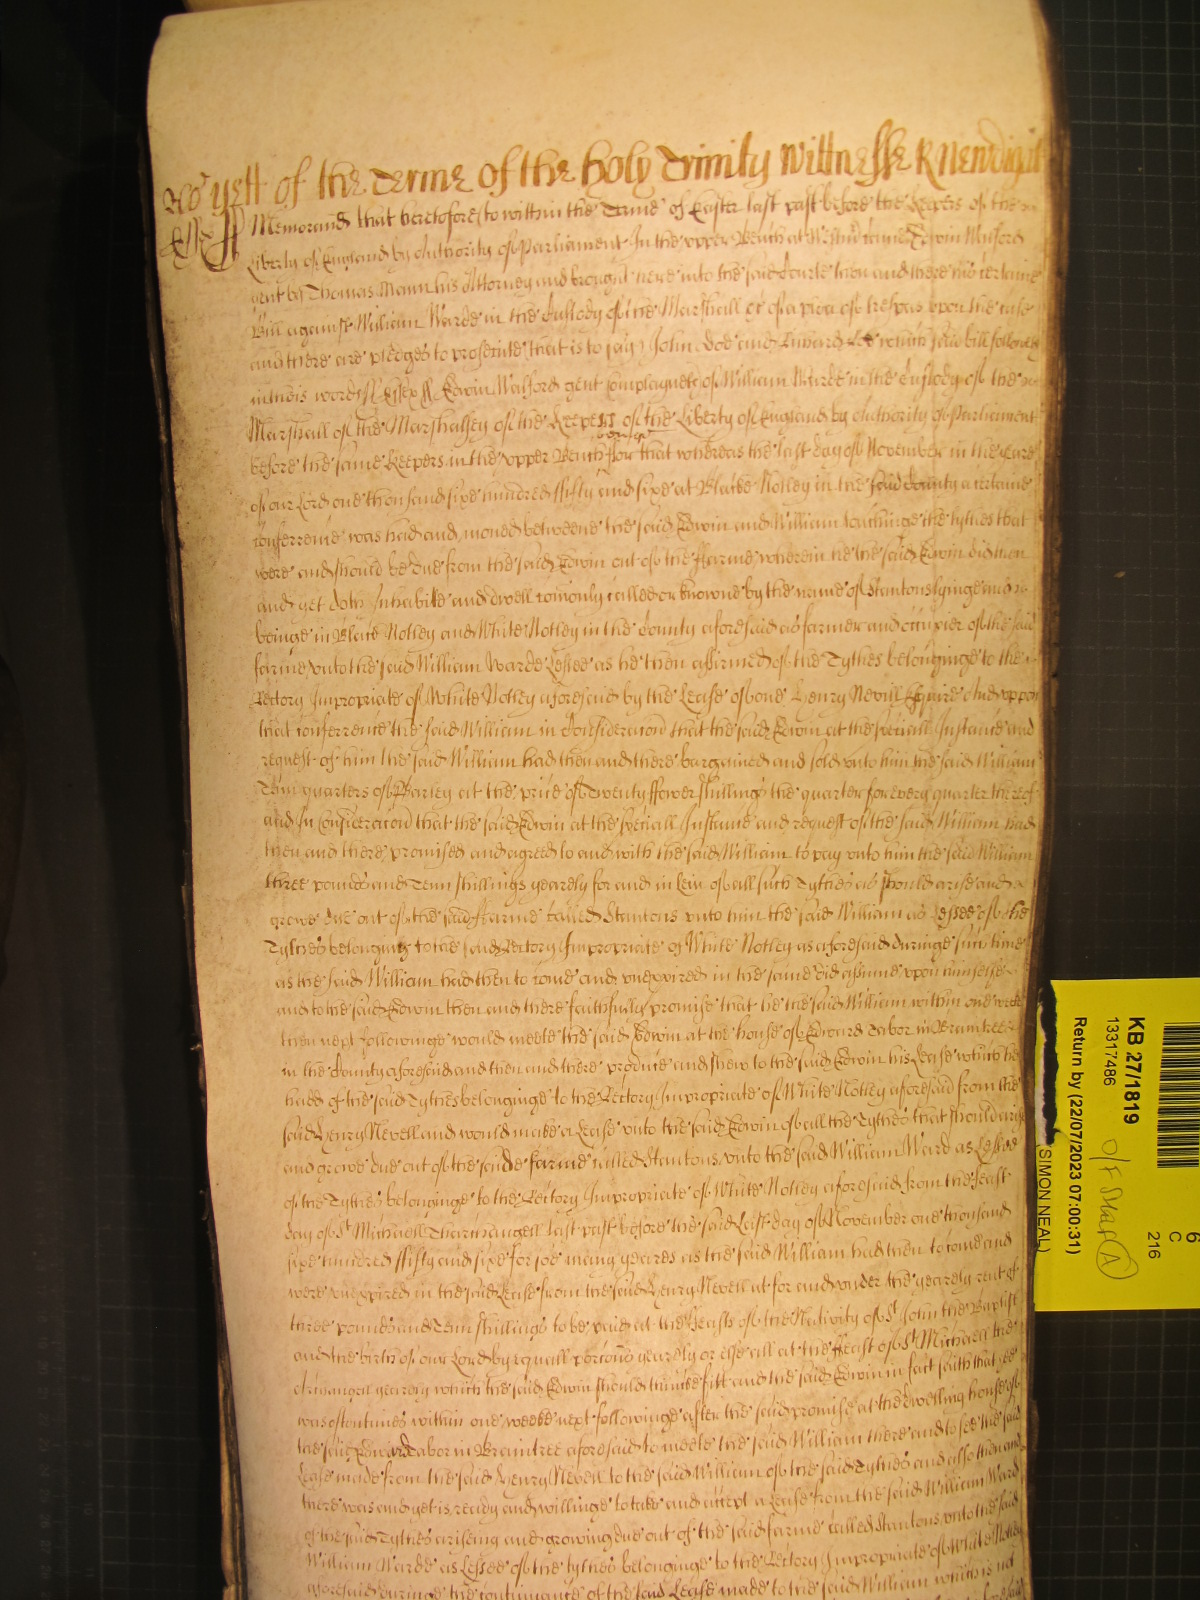 As yett of the Terme of the holy Trinity Wittnesse R Newdigat
Essex ss Memorand that heretofore (to witt) in the Terme of Easter last past before the Keepers of the
Liberty of England by Authority of Parliament In the upper Bench at Westm came Edwin
gent by Thomas Mann his Attorney and brought here into the said Courte then and there his certaine
Bill against William Warde in the Custody of the Marshall &c of a plea of trespas upon the case
and there are pledges to prosecute that is to say John Doe and which said bill followes
in theis words ss Essex ss Edwin Walford gent complayneth of William Warde in the Custody of the
Marshall of the Marshalsey of the Keepers of the Liberty of England by Authority of Parliament
before the same Keepers in the upper Bench for that whereas the last day of November in the yeare
of our Lord one thousand sixe hundred fifty and sixe at Blacke Notley in the said County a certaine
conferrence was had and moved betweene the said Edwin and William touchinge the tythes that
were and should be due from the said Edwin out of the ffarme wherein he the said Edwin did then
and yet doth Inhabite and dwell comonly called or knowne by the name of Stantons lyinge and
beinge in Blacke Notley and White Notley in the County aforesaid as farmer and occupier of the said
farme unto the said William Warde Lessee as he then affirmed of the Tythes belonginge to the
Rectory Impropriate of White Notley aforesaid by the Lease of one Henry Nevill Esquire And uppon
that conferrence the said William in Consideracon that the said Edwin at the speciall Instance and
request of him the said William had then and there bargained and sold unto him the said William
Tenn quarters of Barley at the price of Twenty ffower shillings the quarter for every quarter thereof
and In Consideracon that the said Edwin at the speciall Instance and request of the said William had
then and there promised and agreed to and with the said William to pay unto him the said William
three pounds and Tenn shillings yearely for and in Leiu of all such Tythes as should arise and
growe due out of the said ffarme called Stantons unto him the said William as Lessee of the
Tythes belonging to the said Rectory Impropriate of White Notley as aforesaid duringe such time
as the said William had then to come and unexpired in the same did assume upon himselfe
and to the said Edwin then and there faithfully promise that he the said William within one weeke
then next followinge would meete the said Edwin at the house of Edward Tabor in Braintree
in the County aforesaid and then and there produce and shew to the said Edwin his Lease which he
hadd of the said Tythes belonginge to the Rectory Impropriate of White Notley aforesaid from the
said Henry Nevell and would make a Lease unto the said Edwin of all the Tythes that should arise
and growe due out of the said farme called Stantons unto the said William Ward as Lessee
of the Tythes belonginge to the Rectory Impropriate of White Notley aforesaid from the feast
day of St Michaell Tharchangell last past before the said Last day of November one thousand
sixe hundred fifty and sixe for soe many yeares as the said William had then to come and
were unexpired in the said Lease from the said Henry Nevell at for and under the yearely rent of
three pounds and Tenn shillings to be paid at the ffeasts of the Nativity of St John the Baptist
and the birth of our Lord by equall porcons yearely or else all at the ffeast of St Michaell the
Archangell yearely which the said Edwin should thincke fitt and the said Edwin in fact saith that hee
was oftentimes within one weeke next followinge after the said promise at the dwelling house of
the said Edward Tabor in Braintree aforesaid to meete the said William there and to see the said
Lease made from the said Henry Nevell to the said William of the said Tythes and also then and
there was and yet is ready and willinge to take and accept a Lease from the said William Ward
of the said Tythes ariseing and growing due out of the said farme called Stantons unto the said
William Warde as Lessee of the tythes belonginge to the Rectory Impropriate of White Notley
aforesaid duringe the continuance of the said Lease made to the said William which is not
KB 27/1819
13317486
Return by (22/07/2023 07:00:31)
(SIMON NEAL)
6
C
216